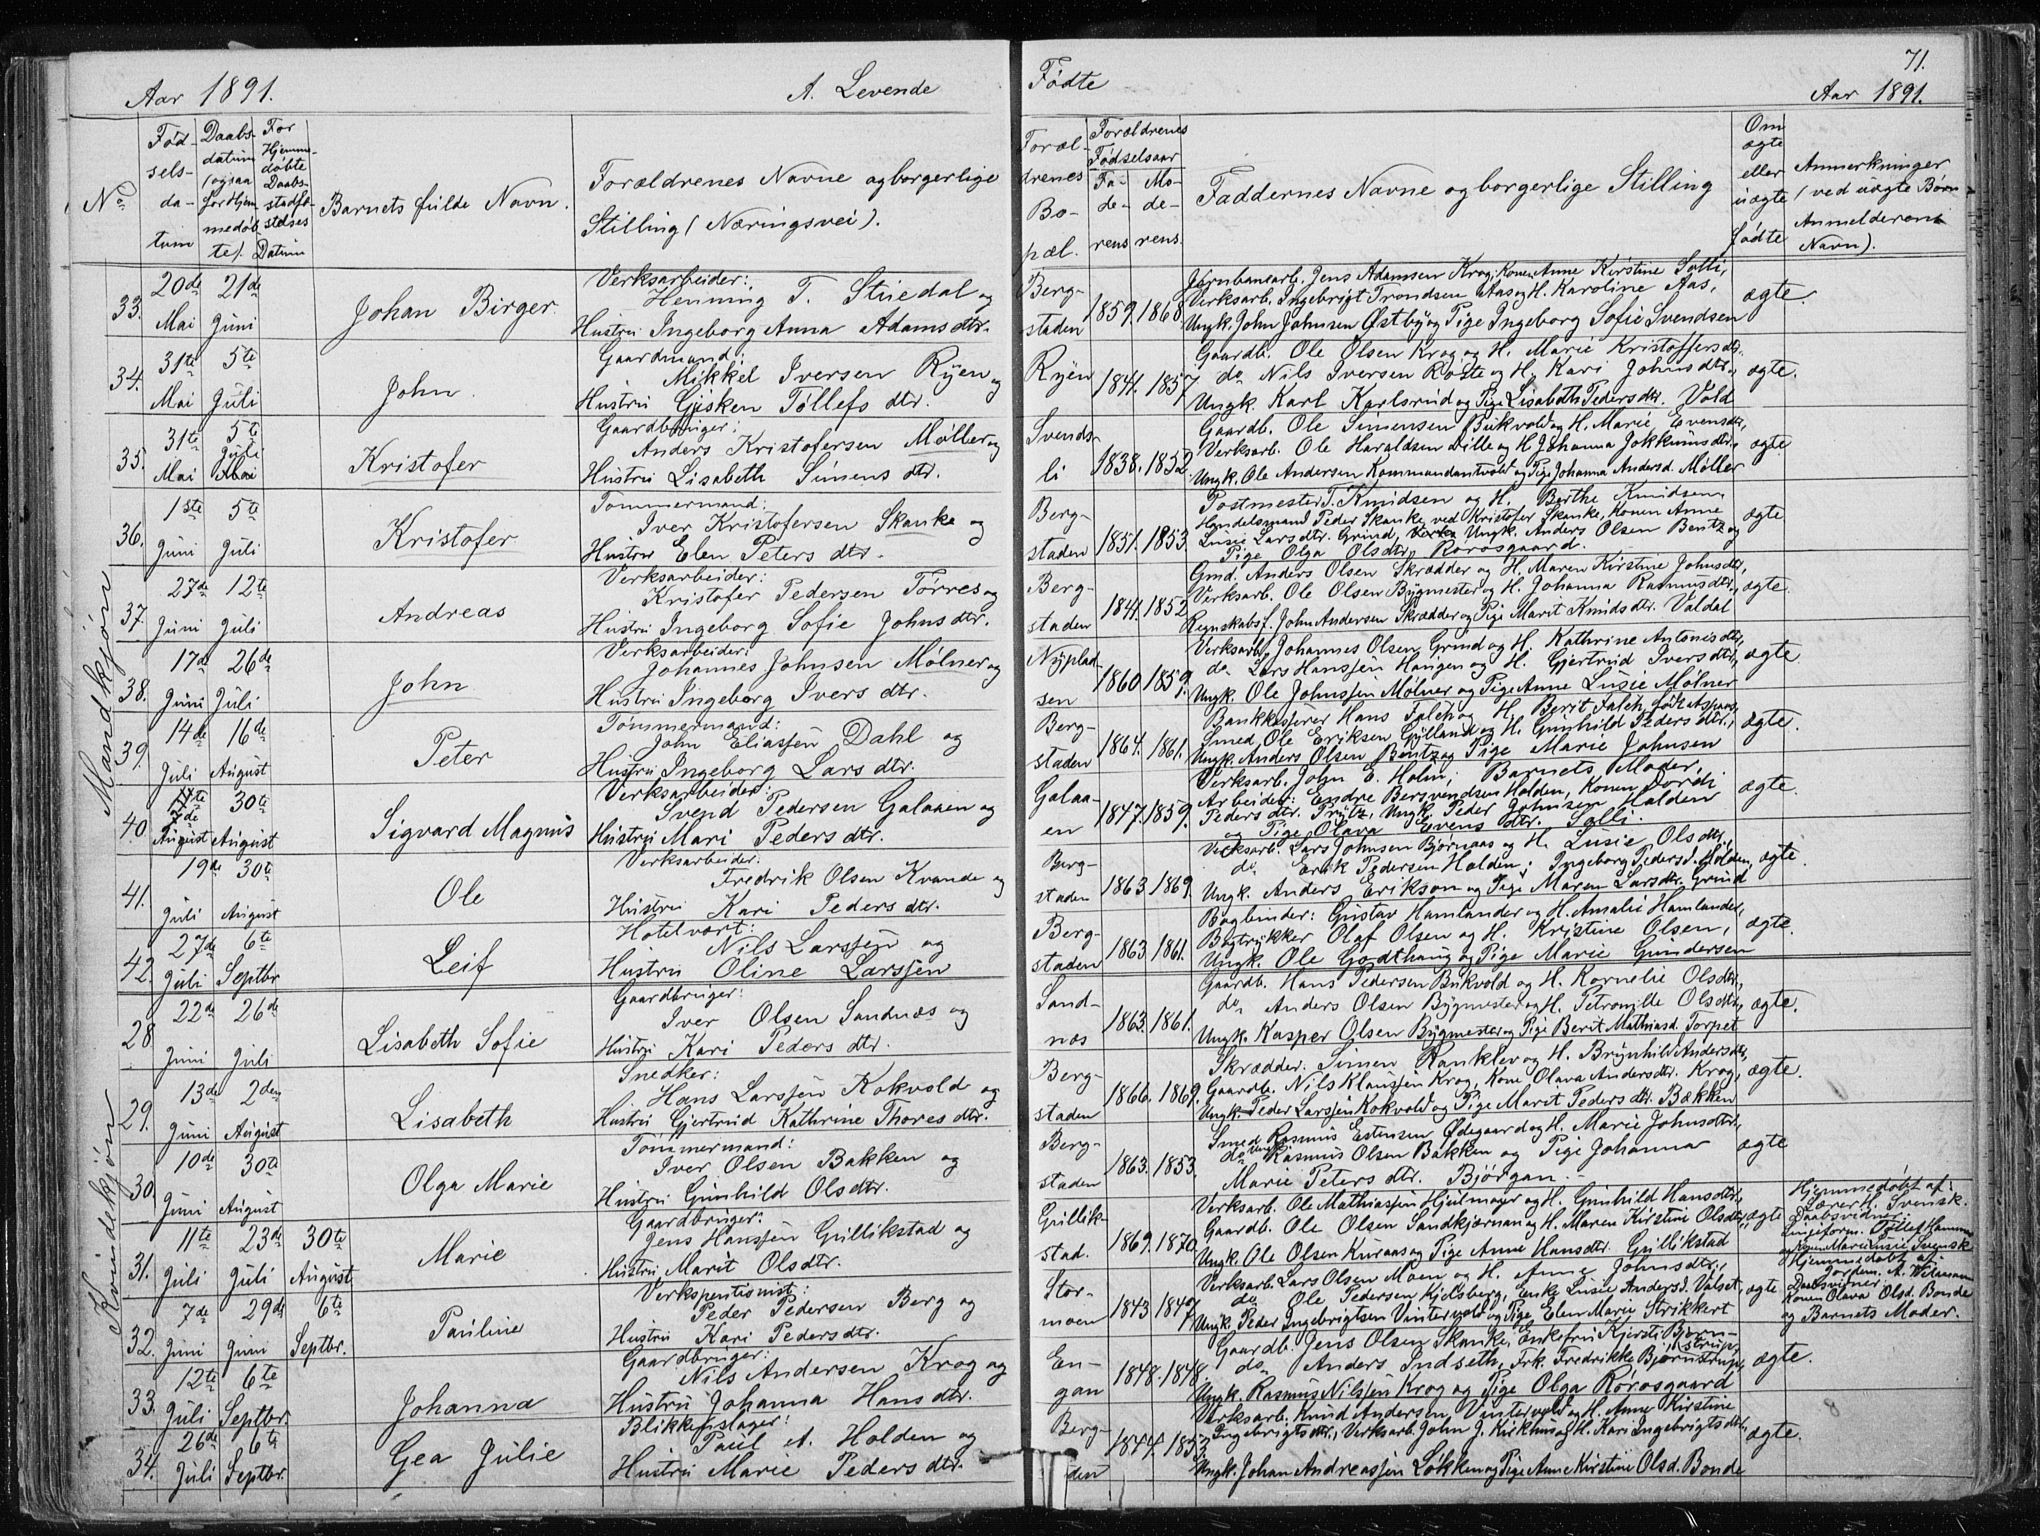 71.
Aar 1891.
A. Levende
Fødte
Aar 1891.
No
Fød-
sels-
da-
tum
Daabs-
datum
(ogsaa
for Hjem-
medøb-
te).
For
Hjemme-
døbte
Daabs-
stadfæ-
stelses
Datum
Barnets fulde Navn.
Forældrenes Navne og borgerlige
Stilling (Næringsvei).
Foræl-
drenes
Bo-
pæl.
Forældrenes
Fødselsaar
Fa-
de-
rens
Mo-
de-
rens.
Faddernes Navne og borgerlige Stilling
Om
ægte
eller
uægte
fødte
Anmerkninger
(ved uægte Børn
Anmelderens
Navn).
Mandkjøn
33.
20de
Mai
21de
Juni
Johan Birger.
Verksarbeider:
Henning T. Stuedal og
Hustru Ingeborg Anna Adamsdtr.
Berg-
staden
1859. 1868.
Jernbanearb. Jens Adamsen Krog, Konen Anne Kirstine Solli,
Verksarb. Ingebrigt Trondsen Aas og H. Karoline Aas,
Ungk. John Johnsen Østby og Pige Ingeborg Sofie Svendsen
ægte.
34.
31te
Mai
5te
Juli
John.
Gaardmand:
Mikkel Iversen Ryen og
Hustru Gjsken Tollefsdtr.
Ryen
1841. 1857
Gaardb. Ole Olsen Krog og H. Marie Kristoffersdtr.
do Nils Iversen Roste og H. Kari Johnsdtr.
Ungk. Karl Karlsrud og Pige Lisabeth Pedersdtr. Vold
ægte.
35.
31te
Mai
5te
Juli
Mai
Kristofer
Gaardbruger:
Anders Kristofersen Møller og
Hustru Lisabeth Simensdtr.
Svends-
li
1838. 1852.
Gaardb. Ole Simensen Bukvold og H. Marie Evensdtr,
Verksarb. Ole Haraldsen Lille og H. Johanna Jokkumsdtr,
Ungk. Ole Andersen Kommandantvold og Pige Johanna Andersd. Møller
ægte
36.
1ste
Juni
5te
Juli
Kristofer
Tømmermand:
Iver Kristofersen Skanke og
Hustru Elen Petersdtr.
Berg-
staden
1851. 1853.
Postmester T. Knudsen og H. Berthe Knudsen,
Handelsmand Peder Skanke, ved Kristofer Skanke, Konen Anne
Lusie Larsdtr. Grind, Ungk. Anders Olsen Bentz og
Pige Olga Olsdtr. Rørosgaard.
ægte
37.
27de
Juni
12te
Juli
Andreas
Verksarbeider:
Kristofer Pedersen Tørres og
Hustru Ingeborg Sofie Johnsdtr.
Berg-
staden
1841. 1852
Gmd. Anders Olsen Skrædder og H. Maren Kirstine Johnsdtr,
Verksarb. Ole Olsen Bygmester og H. Johanna Rasmusdtr,
Regnskabsf. John Andersen Skrædder og Pige Marit Knudsdtr. Valdal
ægte.
38.
17de
Juni
26de
Juli
John
Verksarbeider:
Johannes Johnsen Mølner og
Hustru Ingeborg Iversdtr.
Nyplad-
sen
1860. 1859.
Verksarb. Johannes Olsen Grind og H. Kathrine Antonisdtr,
do. Lars Hanssen Haugen og H. Gjertrud Iversdtr,
Ungk. Ole Johnssen Mølner og Pige Anne Lusie Mølner
ægte
39.
14de
Juli
16de
August
Peter
Tømmermand:
John Eliassen Dahl og
Hustru Ingeborg Larsdtr.
Berg-
staden
1864. 1861.
Bankkasjerer Hans Falch og H. Berit Falch, født Aspaas,
Smed Ole Eriksen Gylland og H. Gunhild Pedersdtr.,
Ungk. Anders Olsen Bentz og Pige Marie Johnsen
ægte.
40.
7de
August
30te
August
Sigvard Magnus
Verksarbeider:
Svend Pedersen Galaaen og
Hustru Mari Pedersdtr.
Galaa-
en
1847. 1859.
Verksarb. John E. Holm, Barnets Moder,
Arbeider: Endre Bersvendsen Holden, Konen Dordi
Pedersdtr. Prytz, Ungk. Peder Johnsen Holden
og Pige Olava Evensdtr. Solli.
ægte.
41.
19de
Juli
30te
August
Ole
Verksarbeider.
Fredrik Olsen Kvande og
Hustru Kari Pedersdtr.
Berg-
staden
1863. 1869.
Verksarb. Lars Johnsen Bjørnaas og H. Lusie Olsdtr,
do. Erik Pedersen Holden, Ingeborg Pedersd. Holden,
Ungk. Anders Erikson og Pige Maren Larsdtr. Grind
ægte.
42.
27de
Juli
6te
Septbr
Leif
Hotelvært:
Nils Larssen og
Hustru Oline Larssen
Berg-
staden
1863. 1861.
Bogbinder: Gustav Hamlander og H. Amalie Hamlander,
Bogtrykker Olaf Olsen og H. Kristine Olsen,
Ungk. Ole Godthaug og Pige Marie Gundersen
ægte.
Kvindekjøn
28
22de
Juni
26de
Juli
Lisabeth Sofie
Gaardbruger:
Iver Olsen Sandnæs og
Hustru Kari Pedersdtr.
Sand-
næs
1863. 1861.
Gaardb. Hans Pedersen Bukvold og H. Kornelie Olsdtr,
do. Anders Olsen Bygmester og H. Petronille Olsdtr,
Ungk. Kasper Olsen Bygmester og Pige Berit Mathiasd. Torpet
ægte.
29.
13de
Juni
2den
August
Lisabeth
Snedker:
Hans Larssen Kokvold og
Hustru Gjertrud Kathrine Thoresdtr.
Berg-
staden
1866. 1869.
Skrædder. Simen Ranklev og H. Brynhild Andersdtr,
Gaardb. Nils Klaussen Krog, Kone Olava Andersdtr. Krog,
Ungk. Peder Larssen Kokvold og Pige Marit Pedersdtr. Bækken
ægte.
30.
10de
Juni
30te
August
Olga Marie
Tømmermand:
Iver Olsen Bakken og
Hustru Gunhild Olsdtr.
Berg-
staden
1863. 1853.
Smed Rasmus Estensen Ødegaard og H. Marie Johnsdtr,
do Ungk. Rasmus Olsen Bakken og Pige Johanna
Marie Petersdtr. Bjørgan.
ægte
31.
11te
Juli
23de
Juli
30te
August
Marie
Gaardbruger:
Jens Hanssen Gullikstad og
Hustru Marit Olsdtr.
Gullik-
stad.
1869. 1870.
Verksarb. Ole Mathiassen Hjulmager og H. Gunhild Hansdtr,
Gaardb. Ole Olsen Sandkjernan og H. Maren Kirstine Olsdtr,
Ungk. Ole Olsen Kuraas og Pige Anne Hansdtr. Gullikstad
ægte
Hjemmedøbt af:
Lærer H. Svensk.
Daabsvidner:
Tollef Hammer
og Konen Marie Lusie Svensk
32.
7de
Juni
29de
Juni
6te
Septbr.
Pauline
Verkspentionist:
Peder Pedersen Berg og
Hustru Kari Pedersdtr.
Stor-
moen
1843 1847
Verksarb. Lars Olsen Moen og H. Anne Johnsdtr.,
do Ole Pedersen Kjelsberg, Enke Lusie Andersd. Valset,
Ungk. Peder Ingebrigtsen Vintervold og Pige Elen Marie Strikkert
ægte
Hjemmedøbt af
Jordem. A. Wermann
Daabsvidner
Konen Olava Olsd. Bonde
og Barnets Moder.
33.
12te
Juli
6te
Septbr.
Johanna
Gaardbruger:
Nils Andersen Krog og
Hustru Johanna Hansdtr.
En-
gan
1848. 1848.
Gaardb. Jens Olsen Skanke, Enkefru Kjersti Bjørn-
strup,
do Anders Indseth, Frk. Fredrikke Bjørnstrup,
Ungk. Rasmus Nilssen Krog og Pige Olga Rørosgaard
ægte.
34.
26de
Juli
6te
Septbr.
Gea Julie
Blikkenslager:
Paul A. Holden og
Hustru Marie Pedersdtr.
Berg-
den
1844. 1853
Verksarb. Knud Andersen Vintervold og H. Anne Kirstine
Ingebrigtsdtr., Verksarb. John J. Kirkhus og H. Kari Ingebrigtsdtr.,
Ungk. Johan Andreassen Løkken og Pige Anne Kirstine Olsd. Bonde
ægte.